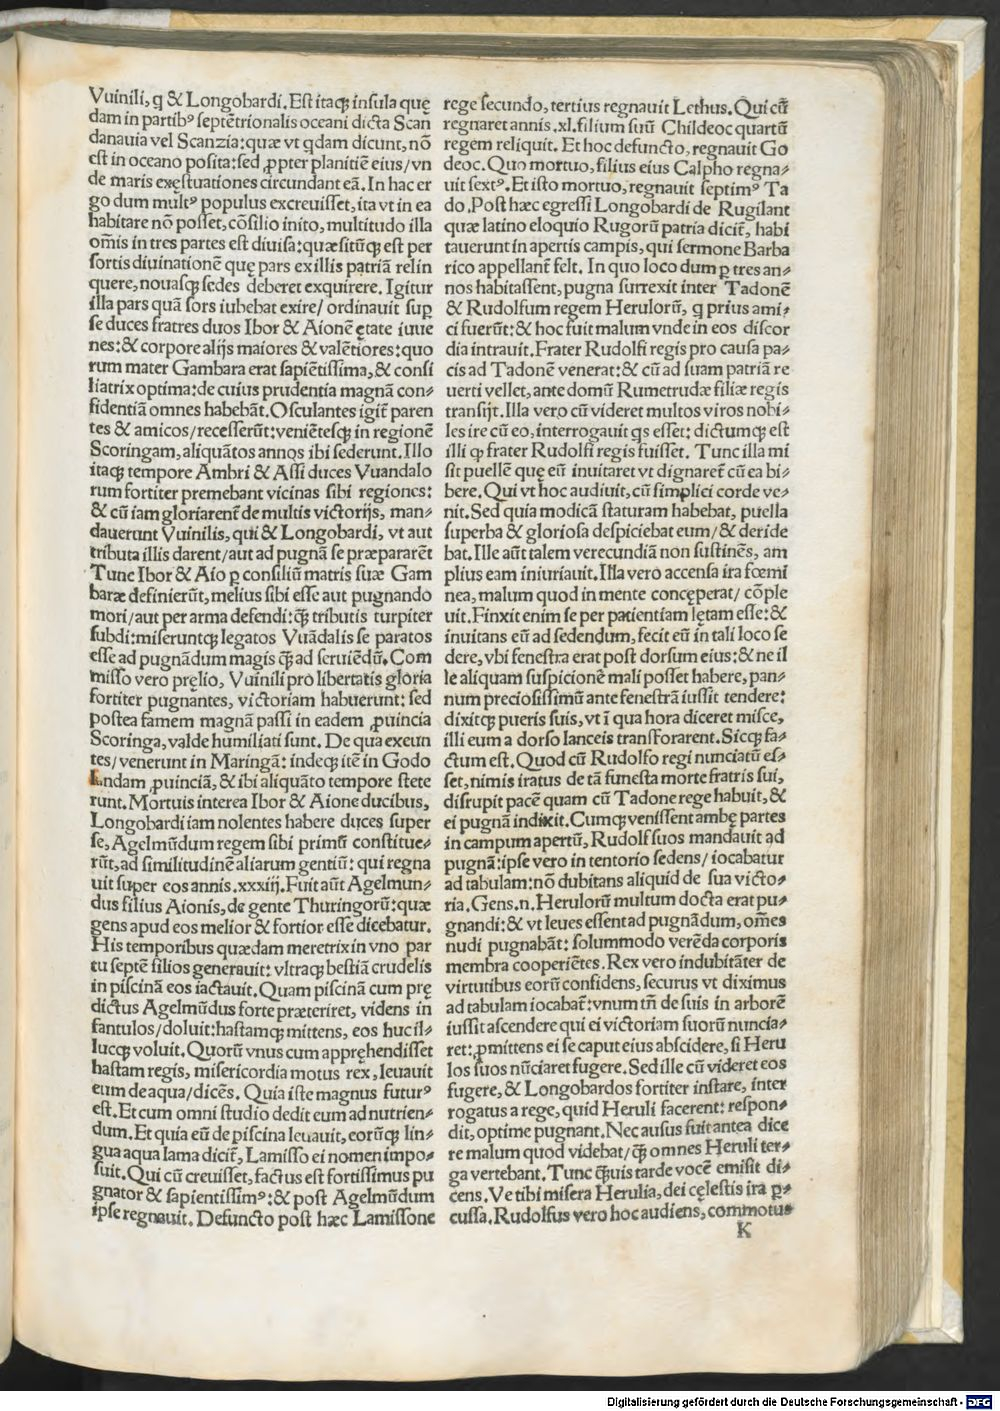 Vuinili, q̃ & Longobardi. Est itaqꝫ insula quę
dam in partibꝰ septētrionalis oceani dicta Scan
danauia vel Scanzia: quæ vt qdam dicunt, nō
est in oceano posita: sed ꝓpter planitiē eius/vn
de maris exęstuationes circundant eā. In hac er
go dum multꝰ populus excreuisset, ita vt in ea
habitare nō posset, cōsilio inito, multitudo illa
om̄is in tres partes est diuisa: quæsitūqꝫ est per
sortis diuinationē quę pars ex illis patriā relin
quere, nouasqꝫ sedes deberet exquirere. Igitur
illa pars quā sors iubebat exire/ ordinauit suꝑ
se duces fratres duos Ibor & Aionē ętate iuue
nes: & corpore alijs maiores & valētiores: quo
rum mater Gambara erat sapiētissima, & consi
liatrix optima: de cuius prudentia magnā con⸗
fidentiā omnes habebāt. Osculantes igit̄ paren
tes & amicos/recesserūt: veniētesqꝫ in regionē
Scoringam, aliquātos annos ibi sederunt. Illo
itaqꝫ tempore Ambri & Assi duces Vuandalo
rum fortiter premebant vicinas sibi regiones:
& cū iam gloriarent̄ de multis victorijs, man⸗
dauerunt Vuinilis, qui & Longobardi, vt aut
tributa illis darent/aut ad pugnā se præpararēt
Tunc Ibor & Aio ꝑ consiliū matris suæ Gam
baræ definierūt, melius sibi esse aut pugnando
mori/aut per arma defendi: q̄ꝫ tributis turpiter
subdi: miseruntqꝫ legatos Vuādalis se paratos
esse ad pugnādum magis q̄ꝫ ad seruiēdū. Com
misso vero pręlio, Vuinili pro libertatis gloria
fortiter pugnantes, victoriam habuerunt: sed
postea famem magnā passi in eadem ꝓuincia
Scoringa, valde humiliati sunt. De qua exeun
tes/ venerunt in Maringā: indeqꝫ itē in Godo
landam ꝓuinciā, & ibi aliquāto tempore stete
runt. Mortuis interea Ibor & Aione ducibus,
Longobardi iam nolentes habere duces super
se, Agelmūdum regem sibi primū constitue⸗
rūt, ad similitudinē aliarum gentiū: qui regna
uit super eos annis .xxxiij. Fuit aūt Agelmun⸗
dus filius Aionis, de gente Thuringorū: quæ
gens apud eos melior & fortior esse dicebatur.
His temporibus quædam meretrix in vno par
tu septē filios generauit: vltraqꝫ bestiā crudelis
in piscinā eos iactauit. Quam piscinā cum prę
dictus Agelmūdus forte præteriret, videns in
fantulos/doluit: hastamqꝫ mittens, eos huc il⸗
lucqꝫ voluit. Quorū vnus cum appręhendisset
hastam regis, misericordia motus rex, leuauit
eum de aqua/dicēs. Quia iste magnus futurꝰ
est. Et cum omni studio dedit eum ad nutrien⸗
dum. Et quia eū de piscina leuauit, eorūqꝫ lin⸗
gua aqua lama dicit̄, Lamisso ei nomen impo⸗
suit. Qui cū creuisset, factus est fortissimus pu
gnator & sapientissimꝰ: & post Agelmūdum
ipse regnauit. Defuncto post hæc Lamissone
rege secundo, tertius regnauit Lethus. Qui cū
regnaret annis .xl. filium suū Childeoc quartū
regem reliquit. Et hoc defuncto, regnauit Go
deoc. Quo mortuo, filius eius Calpho regna⸗
uit sextꝰ. Et isto mortuo, regnauit septimꝰ Ta
do. Post hæc egressi Longobardi de Rugilant
quæ latino eloquio Rugorū patria dicit̄, habi
tauerunt in apertis campis, qui sermone Barba
rico appellant̄ felt. In quo loco dum ꝑ tres an⸗
nos habitassent, pugna surrexit inter Tadonē
& Rudolfum regem Herulorū, q̃ prius ami⸗
ci fuerūt: & hoc fuit malum vnde in eos discor
dia intrauit. Frater Rudolfi regis pro causa pa⸗
cis ad Tadonē venerat: & cū ad suam patriā re
uerti vellet, ante domū Rumetrudæ filiæ regis
transijt. Illa vero cū videret multos viros nobi⸗
les ire cū eo, interrogauit q̃s esset: dictumqꝫ est
illi ꝙ frater Rudolfi regis fuisset. Tunc illa mi
sit puellē quę eū inuitaret vt dignaret̄ cū ea bi⸗
bere. Qui vt hoc audiuit, cū simplici corde ve⸗
nit. Sed quia modicā staturam habebat, puella
superba & gloriosa despiciebat eum/ & deride
bat. Ille aūt talem verecundiā non sustinēs, am
plius eam iniuriauit. Illa vero accensa ira fœmi
nea, malum quod in mente concęperat/ cōple
uit. Finxit enim se per patientiam lętam esse: &
inuitans eū ad sedendum, fecit eū in tali loco se
dere, vbi fenestra erat post dorsum eius: & ne il
le aliquam suspicionē mali posset habere, pan⸗
num preciosissimū ante fenestrā iussit tendere:
dixitqꝫ pueris suis, vt ī qua hora diceret misce,
illi eum a dorso lanceis transforarent. Sicqꝫ fa⸗
ctum est. Quod cū Rudolfo regi nunciatū es⸗
set, nimis iratus de tā funesta morte fratris sui,
disrupit pacē quam cū Tadone rege habuit, &
ei pugnā indixit. Cumqꝫ venissent ambę partes
in campum apertū, Rudolf suos mandauit ad
pugnā: ipse vero in tentorio sedens/ iocabatur
ad tabulam: nō dubitans aliquid de sua victo⸗
ria. Gens .n. Herulorū multum docta erat pu⸗
gnandi: & vt leues essent ad pugnādum, om̄es
nudi pugnabāt: solummodo verēda corporis
membra cooperiētes. Rex vero indubitāter de
virtutibus eorū confidens, securus vt diximus
ad tabulam iocabat̄: vnum tn̄ de suis in arborē
iussit ascendere qui ei victoriam suorū nuncia⸗
ret: ꝓmittens ei se caput eius abscidere, si Heru
los suos nūciaret fugere. Sed ille cū videret eos
fugere, & Longobardos fortiter instare, inter
rogatus a rege, quid Heruli facerent: respon⸗
dit, optime pugnant. Nec ausus fuit antea dice
re malum quod videbat/ q̄ꝫ omnes Heruli ter⸗
ga vertebant. Tunc q̄ꝫuis tarde vocē emisit di⸗
cens. Ve tibi misera Herulia, dei cęlestis ira ꝑ⸗
cussa. Rudolfus vero hoc audiens, commotus
K
Digitalisierung gefördert durch die Deutsche Forschungsgemeinschaft - DFG